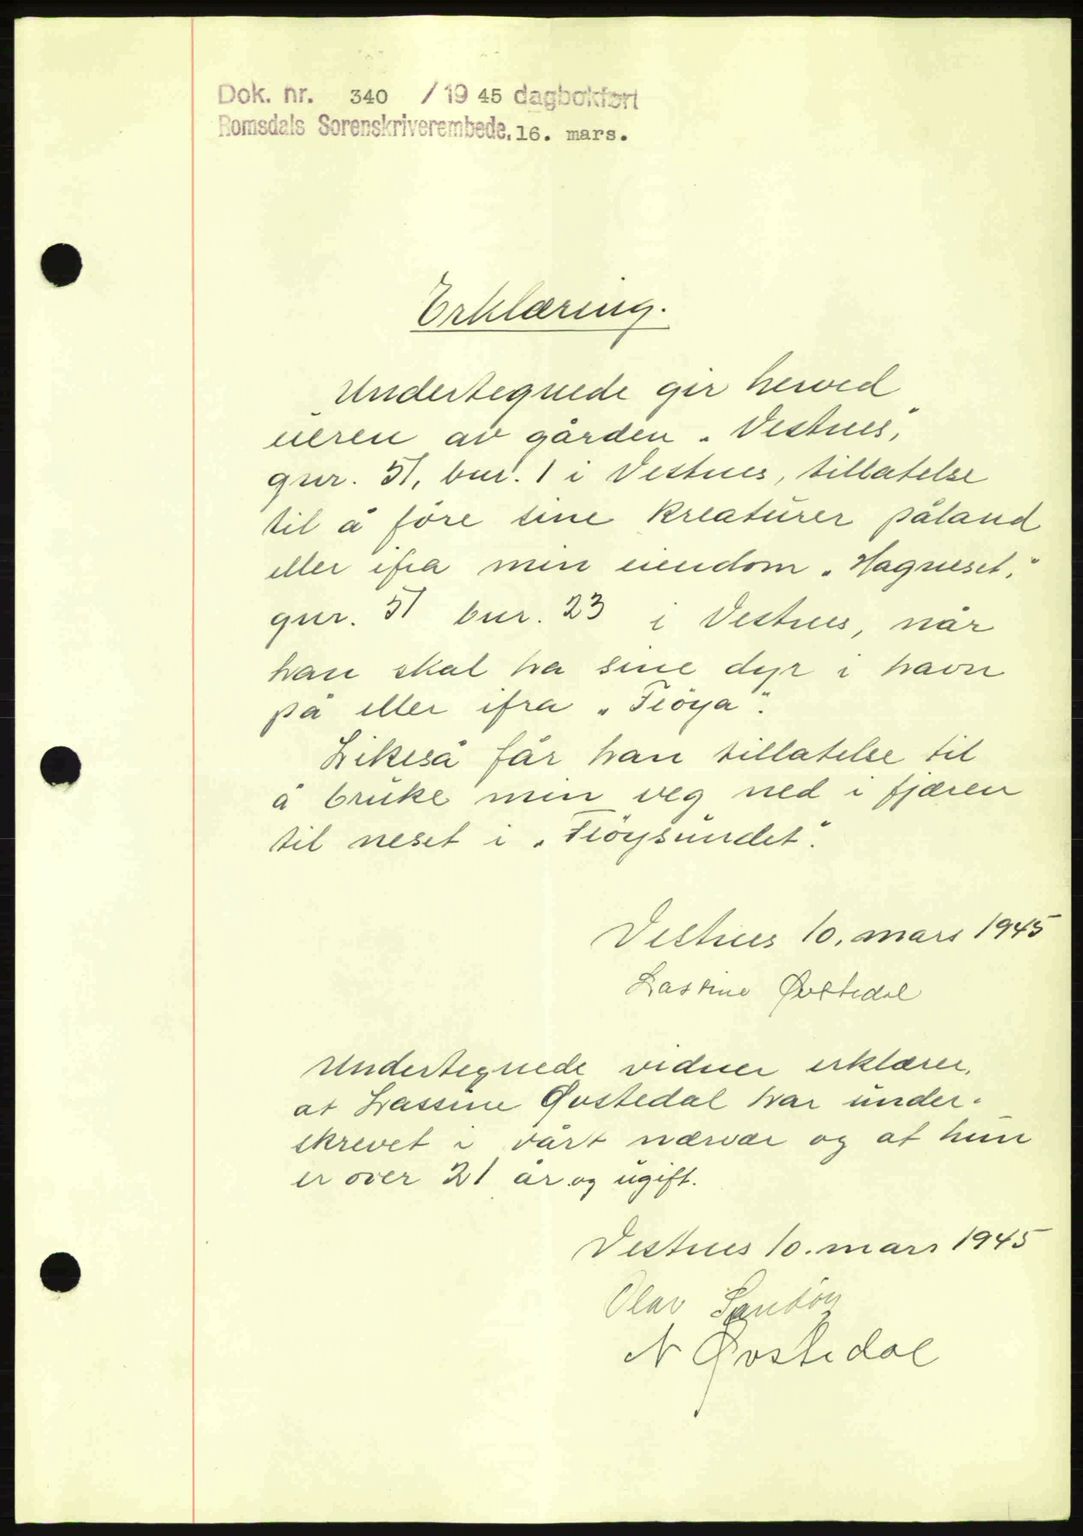 Dok. nr. 340 / 19 45 dagbokført
Romsdals Sorenskriverembede, 16. mars.
Erklæring.
Undertegnede gir herved
eieren av gården „Vestnes",
gnr. 51, bnr. 1 i Vestnes, tillatelse
til å före sine kreaturer påland
eller ifra min eiendom „Hagneset,"
gnr. 51 bnr. 23 i Vestnes, når
han skal ha sine dyr i havn
på eller ifra „Flöya".
Likeså får han tillatelse til
å bruke min veg ned i fjæren
til neset i „Flöysundet".
Vestnes 10. mars 1945
Lassine Øvstedal
Undertegnede vidner erklærer,
at Lassine Øvstedal har under-
skrevet i vårt nærvær og at hun
er over 21 år og ugift.
Vestnes 10. mars 1945
Olav
N Øvstedal